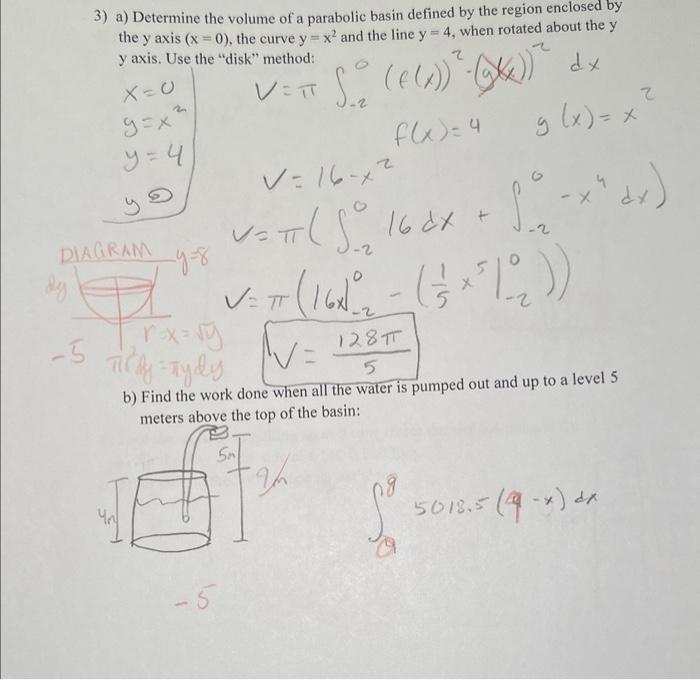 3) a) Determine the volume of a parabolic basin defined by the region enclosed by
the y axis (x = 0), the curve y = x² and the line y = 4, when rotated about the y
y axis. Use the “disk” method:
x=0
y=x²
y=4
y
V=π ∫₋₂⁰ (f(x))² - (g(x))² dx
f(x)=4 g(x)=x²
V=16-x²
V=π(∫₋₂⁰ 16dx + ∫₋₂⁰ -x⁴ dx)
V=π(16x|₋₂⁰ - (1/5 x⁵|₋₂⁰))
V= 128π/5
DIAGRAM y=8
dy
r=x=√y
-5 πr²dy=πydy
b) Find the work done when all the water is pumped out and up to a level 5
meters above the top of the basin:
5m
9m
4m
5018.5 (9-x) dx
-5